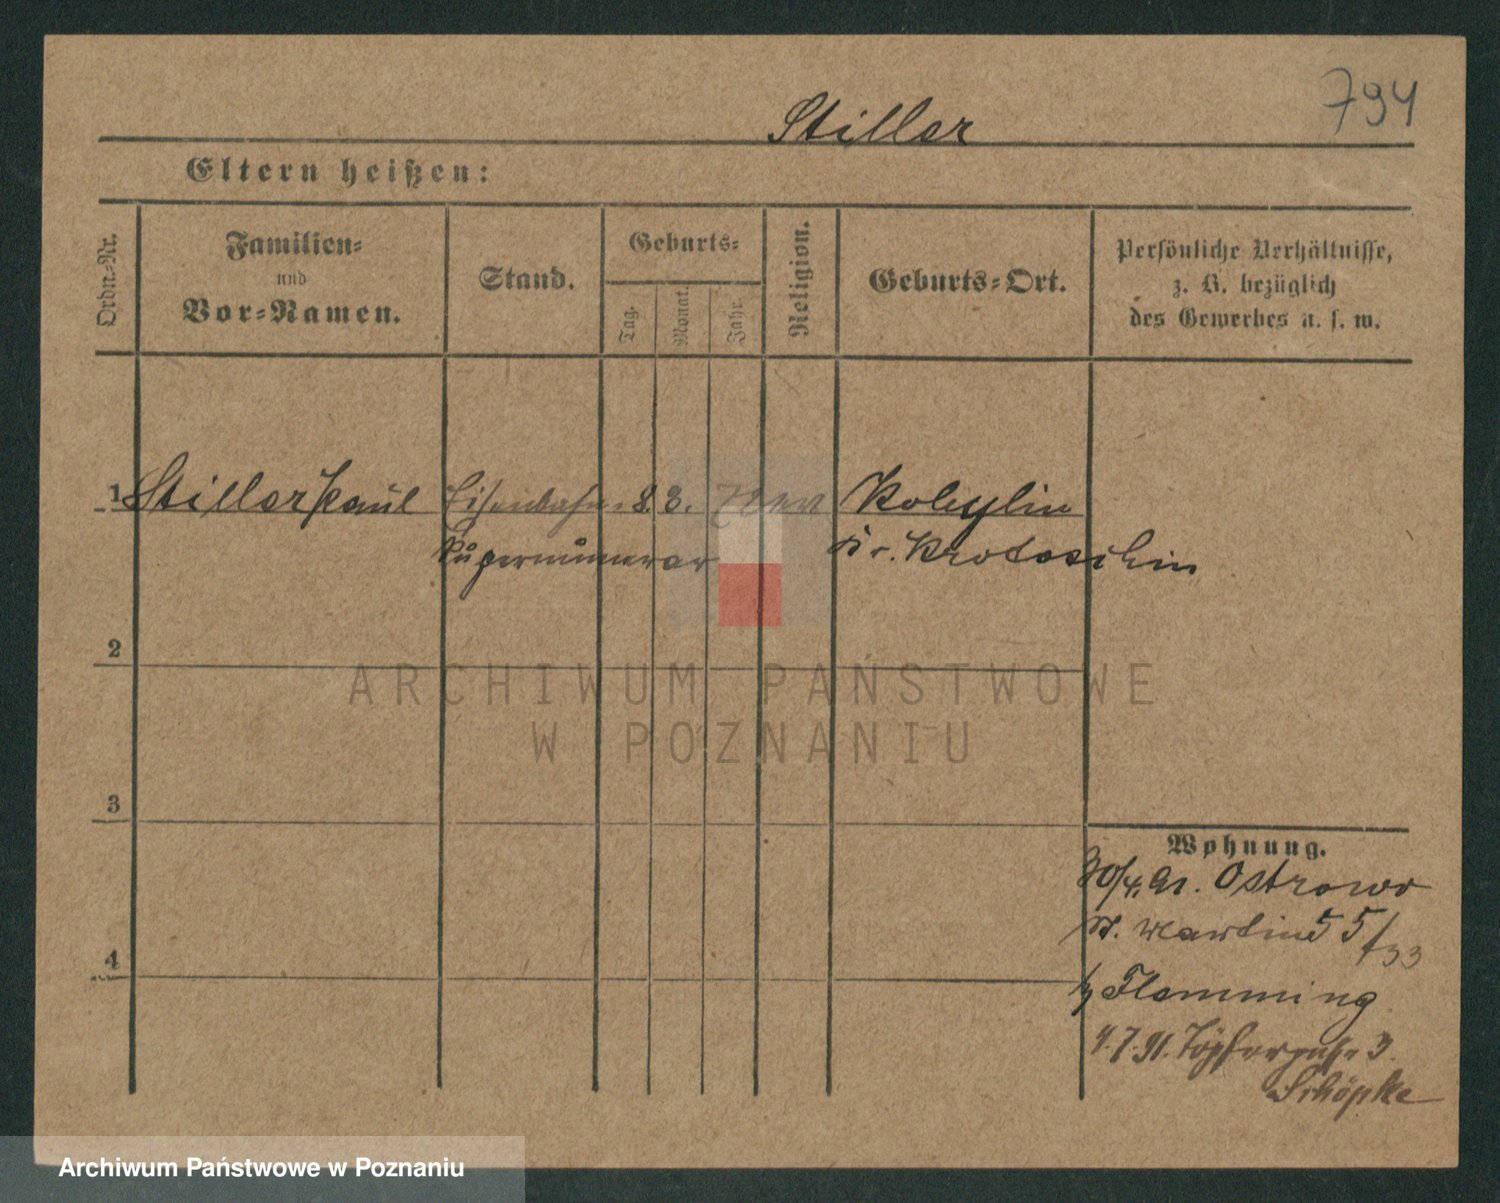 794
Stiller
Eltern heißen:
Ordn.-Nr.
Familien-
und
Vor-Namen.
Stand.
Geburts-
Tag.
Monat.
Jahr.
Religion.
Geburts-Ort.
Persönliche Verhältnisse,
z. B. bezüglich
des Gewerbes u. s. w.
1 Stiller Paul Eisenbahn 8. 8. Kobylin
Supernumerar Kr. Krotoschin
2
3
4
Wohnung.
30/4. 91. Ostrowo
St. Martin 55/
Flemming
4.7.91. Töpfergasse 3.
Schöpke
ARCHIWUM PAŃSTWOWE
W POZNANIU
Archiwum Państwowe w Poznaniu